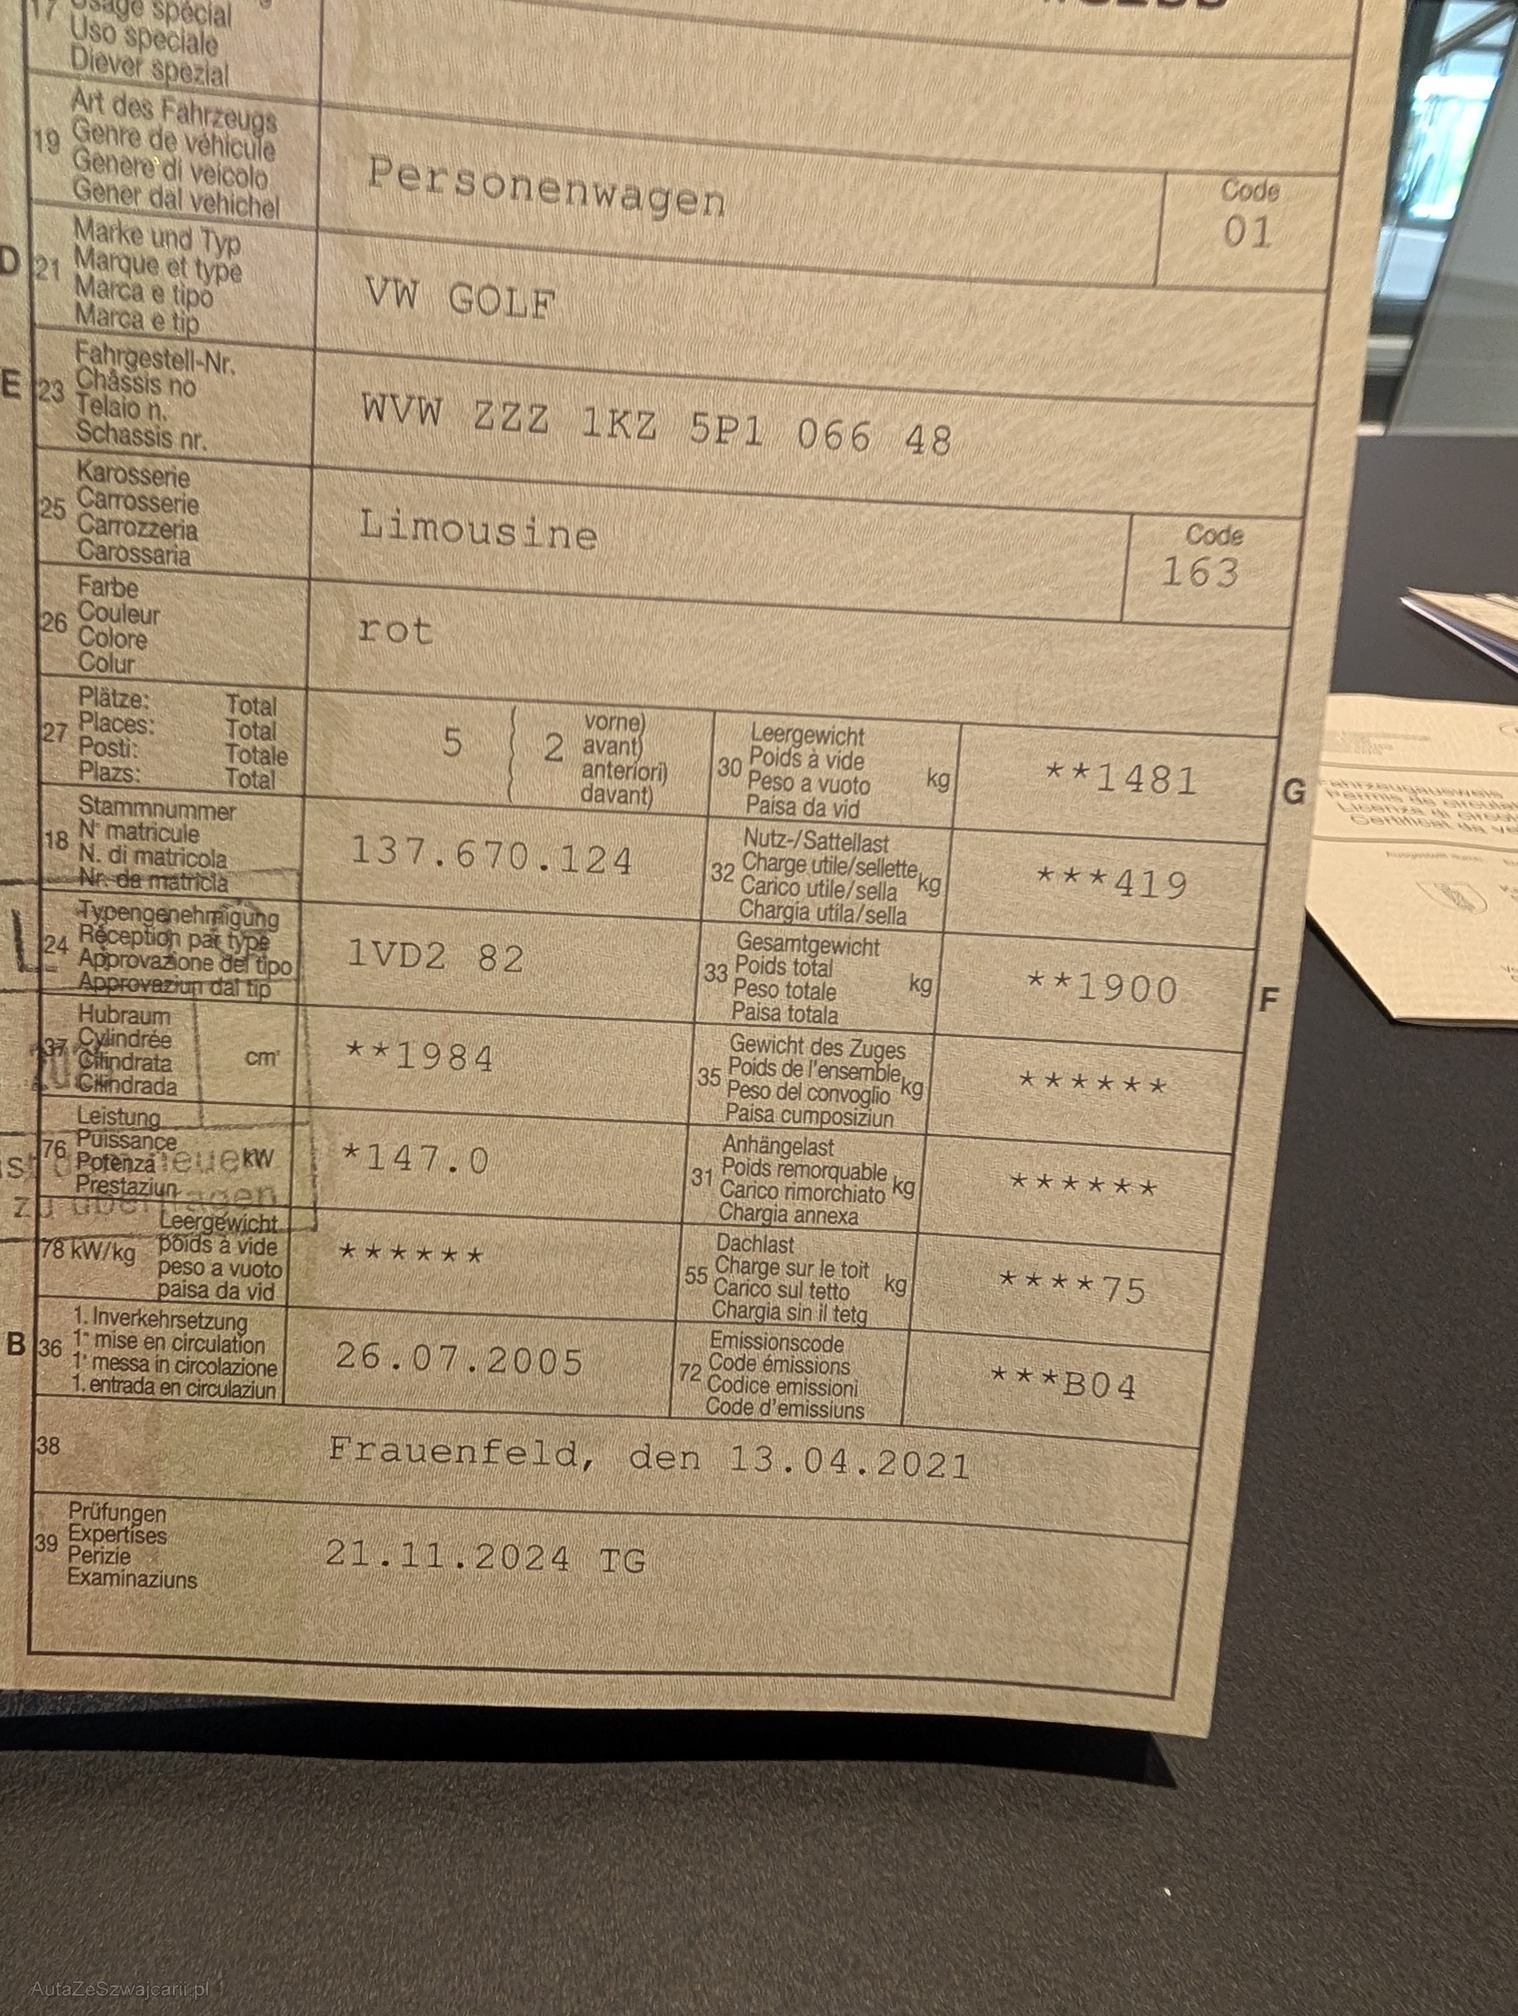 17 Usage spécial
Uso speciale
Diever spezial
Art des Fahrzeugs
19 Genre de véhicule
Genere di veicolo
Gener dal vehichel
Personenwagen
Code
01
Marke und Typ
D 21 Marque et type
Marca e tipo
Marca e tip
VW GOLF
Fahrgestell-Nr.
E 23 Châssis no
Telaio n.
Schassis nr.
WVW ZZZ 1KZ 5P1 066 48
Karosserie
25 Carrosserie
Carrozzeria
Carossaria
Limousine
Code
163
Farbe
26 Couleur
Colore
Colur
rot
Plätze: Total
27 Places: Total
Posti: Totale
Plazs: Total
5 2
vorne)
avant)
anteriori)
davant)
Leergewicht
30 Poids à vide
Peso a vuoto kg
Paisa da vid
**1481
G
Stammnummer
18 N° matricule
N. di matricola
Nr. da matricla
137.670.124
Nutz-/Sattellast
32 Charge utile/sellette kg
Carico utile/sella
Chargia utila/sella
***419
Typengenehmigung
24 Réception par type
Approvazione del tipo
Approvaziun dal tip
1VD2 82
Gesamtgewicht
33 Poids total kg
Peso totale
Paisa totala
**1900
F
Hubraum
37 Cylindrée
Cilindrata cm³
Cilindrada
**1984
Gewicht des Zuges
35 Poids de l'ensemble kg
Peso del convoglio
Paisa cumposiziun
******
Leistung
76 Puissance
Potenza kW
Prestaziun
*147.0
Anhängelast
31 Poids remorquable kg
Carico rimorchiato
Chargia annexa
******
Leergewicht
78 kW/kg poids à vide
peso a vuoto
paisa da vid
******
Dachlast
55 Charge sur le toit kg
Carico sul tetto
Chargia sin il tetg
****75
1. Inverkehrsetzung
B 36 1° mise en circulation
1° messa in circolazione
1. entrada en circulaziun
26.07.2005
Emissionscode
72 Code émissions
Codice emissioni
Code d'emissiuns
***B04
38
Frauenfeld, den 13.04.2021
Prüfungen
39 Expertises
Perizie
Examinaziuns
21.11.2024 TG
AutaZeSzwajcarii.pl